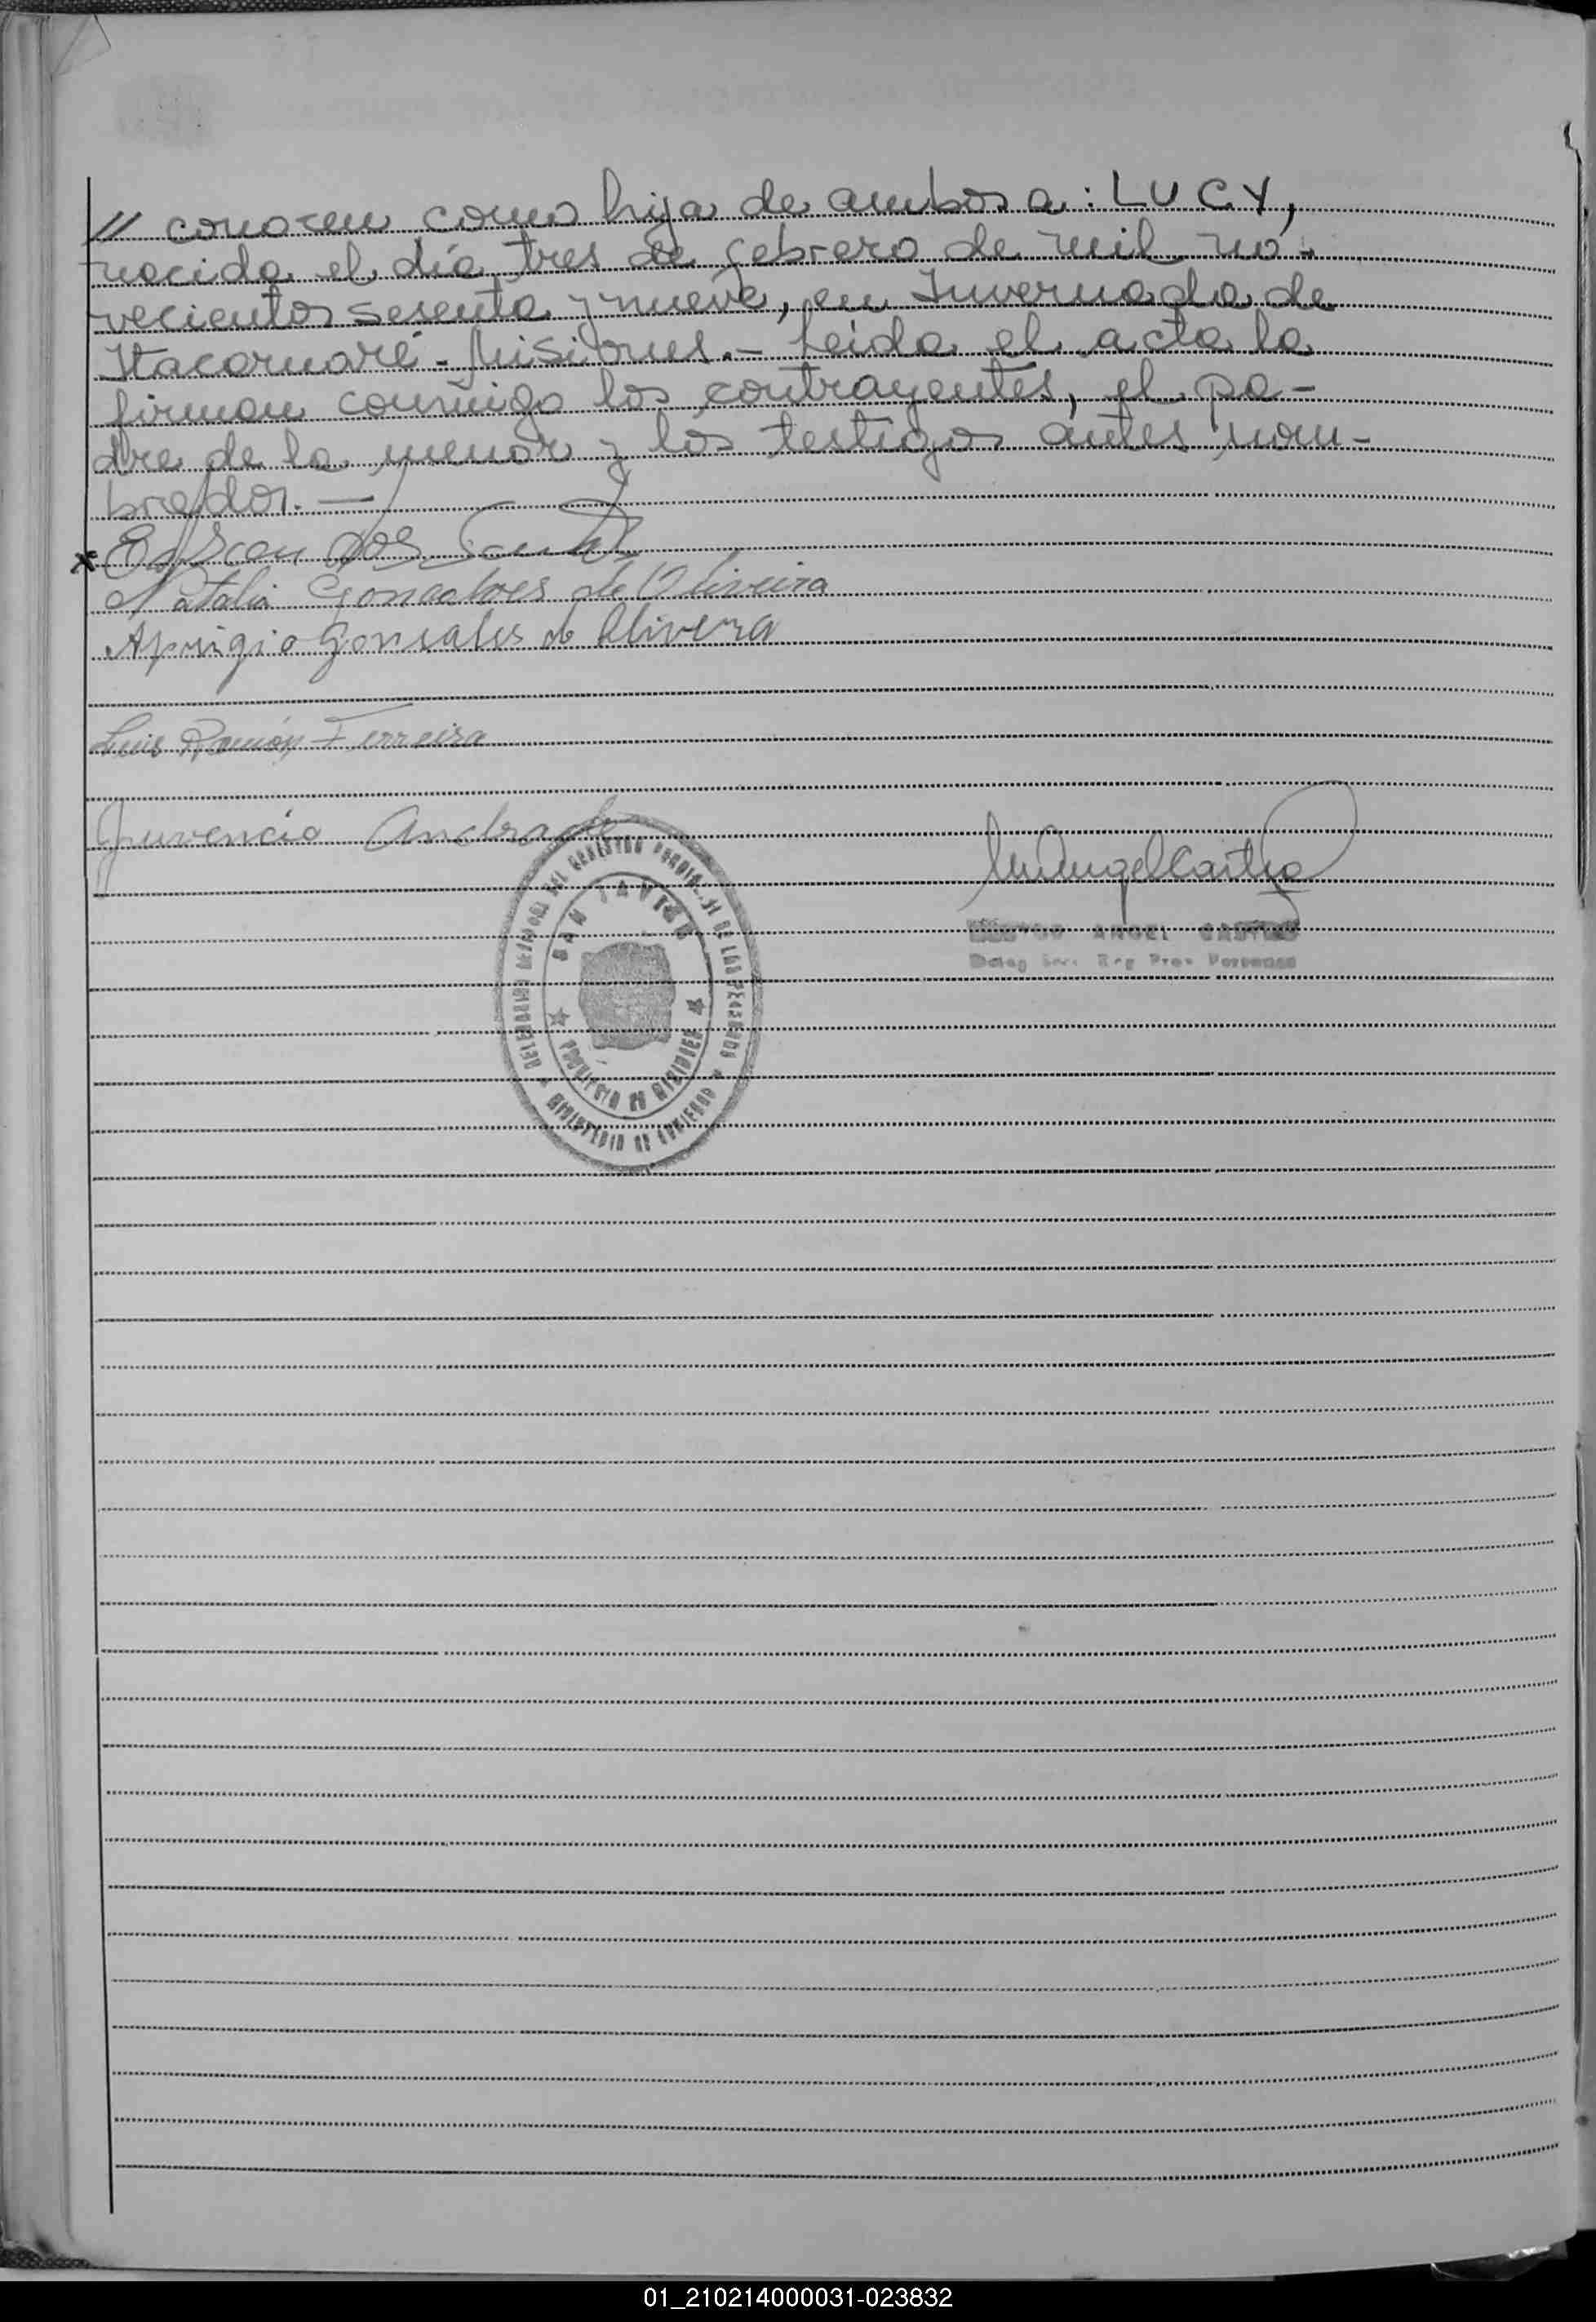 // conocen como hija de ambos a: LUCY,
nacida el día tres de febrero de mil no-
vecientos sesenta y nueve, en Invernada de
Itacaruaré - Misiones.- Leida el acta la
firman conmigo los contrayentes, el pa-
dre de la menor y los testigos antes nom-
brados.—
x dos Santos
Natalia Goncalves de Oliveira
Aprigio Gonsales de Olivera
Luis Ramón Ferreira
Juvencio Andrade
ANGEL CASTRO
Deleg Reg Prov Personas
DEL REGISTRO PROVINCIAL DE LAS PERSONAS
SAN JAVIER
PROVINCIA DE MISIONES
MINISTERIO DE GOBIERNO
01_210214000031-023832